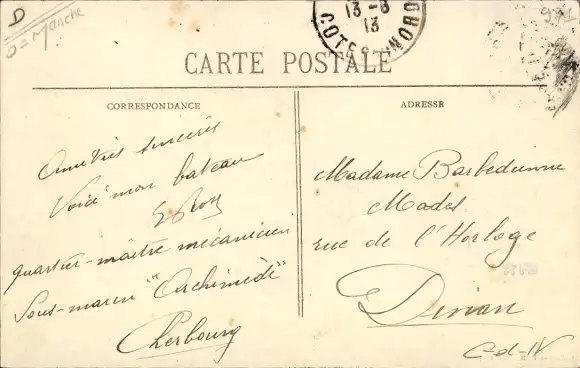 D
D = Manche
13-6
13
COTES-DU-NORD
CARTE POSTALE
CORRESPONDANCE
Amitiés sincères
Voici mon bateau
quartier-maître mécanicien
Sous-marin "Archimède"
Cherbourg
ADRESSE
Madame Barbedienne
Modes
rue de l'Horloge
Dinan
Cd-N